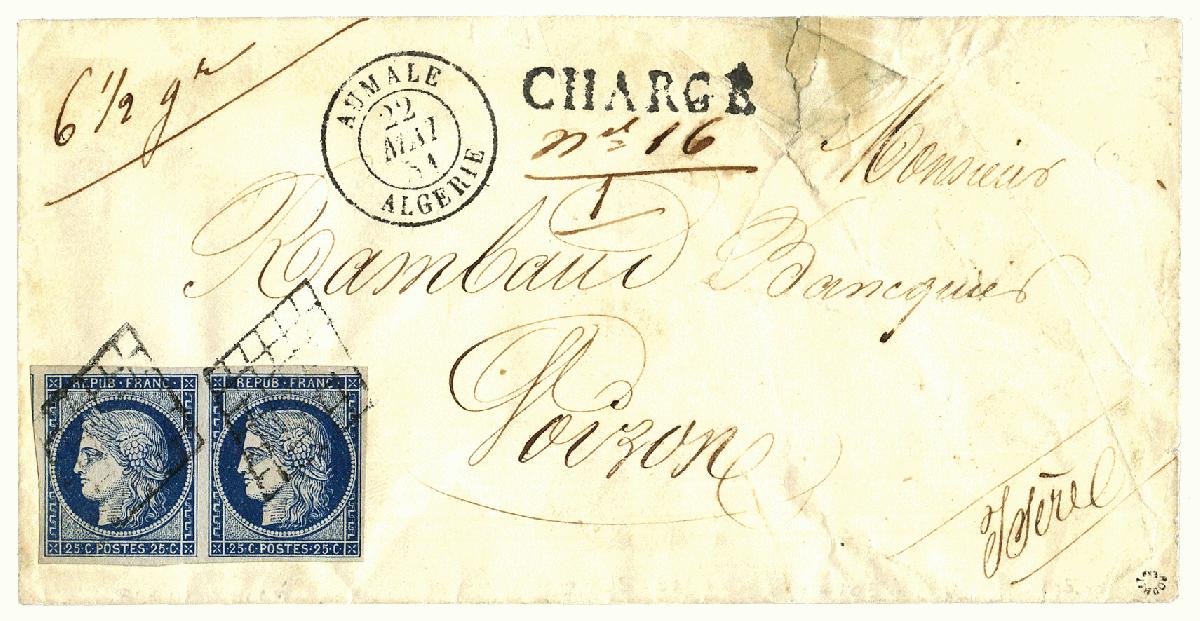 6 1/2 gr
AUMALE
22
MAI
51
ALGERIE
CHARGÉ
nº 16
1
Monsieur
Rambaud Bancquier
Voizon
Isère
REPUB·FRANC·
25·C·POSTES·25·C·
REPUB·FRANC·
25·C·POSTES·25·C·